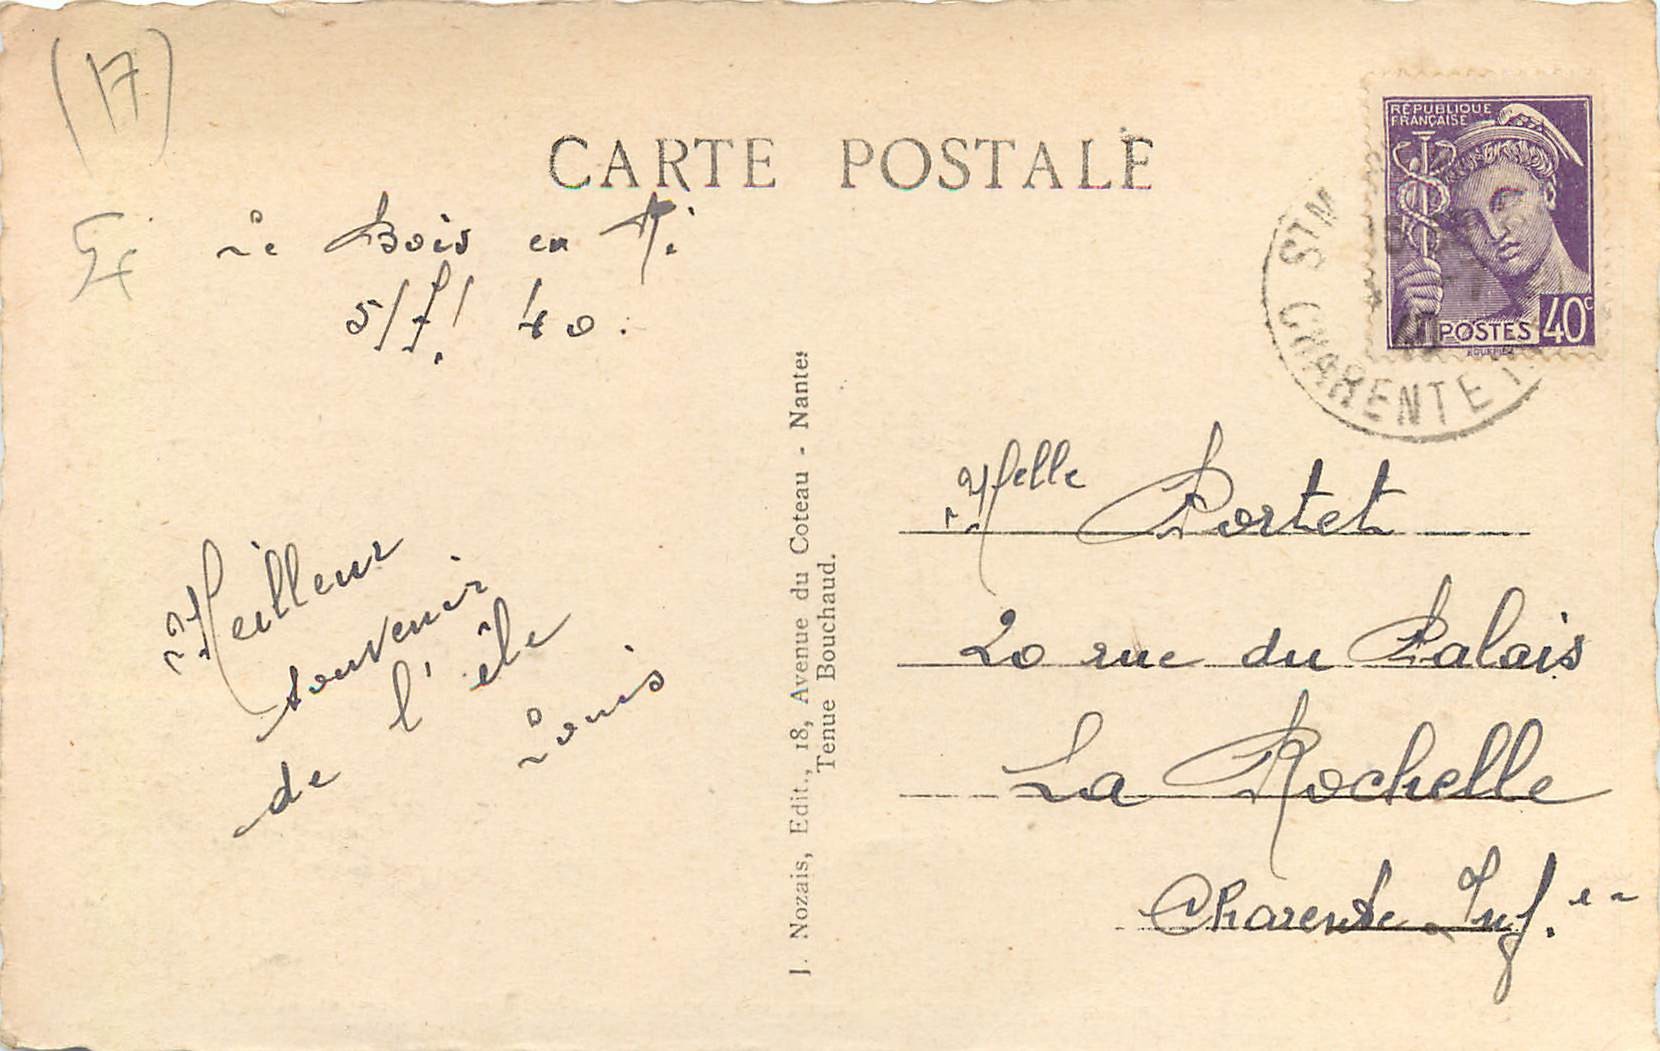 (17)
CARTE POSTALE
RÉPUBLIQUE
FRANÇAISE
POSTES 40c
ST M
CHARENTE
Le Bois en Ré
5/7/40.
Meilleur
souvenir
de l'île
Louis
J. Nozais, Edit., 18, Avenue du Coteau - Nantes
Tenue Bouchaud.
Melle Portet
20 rue du Palais
La Rochelle
Charente-Inf.re